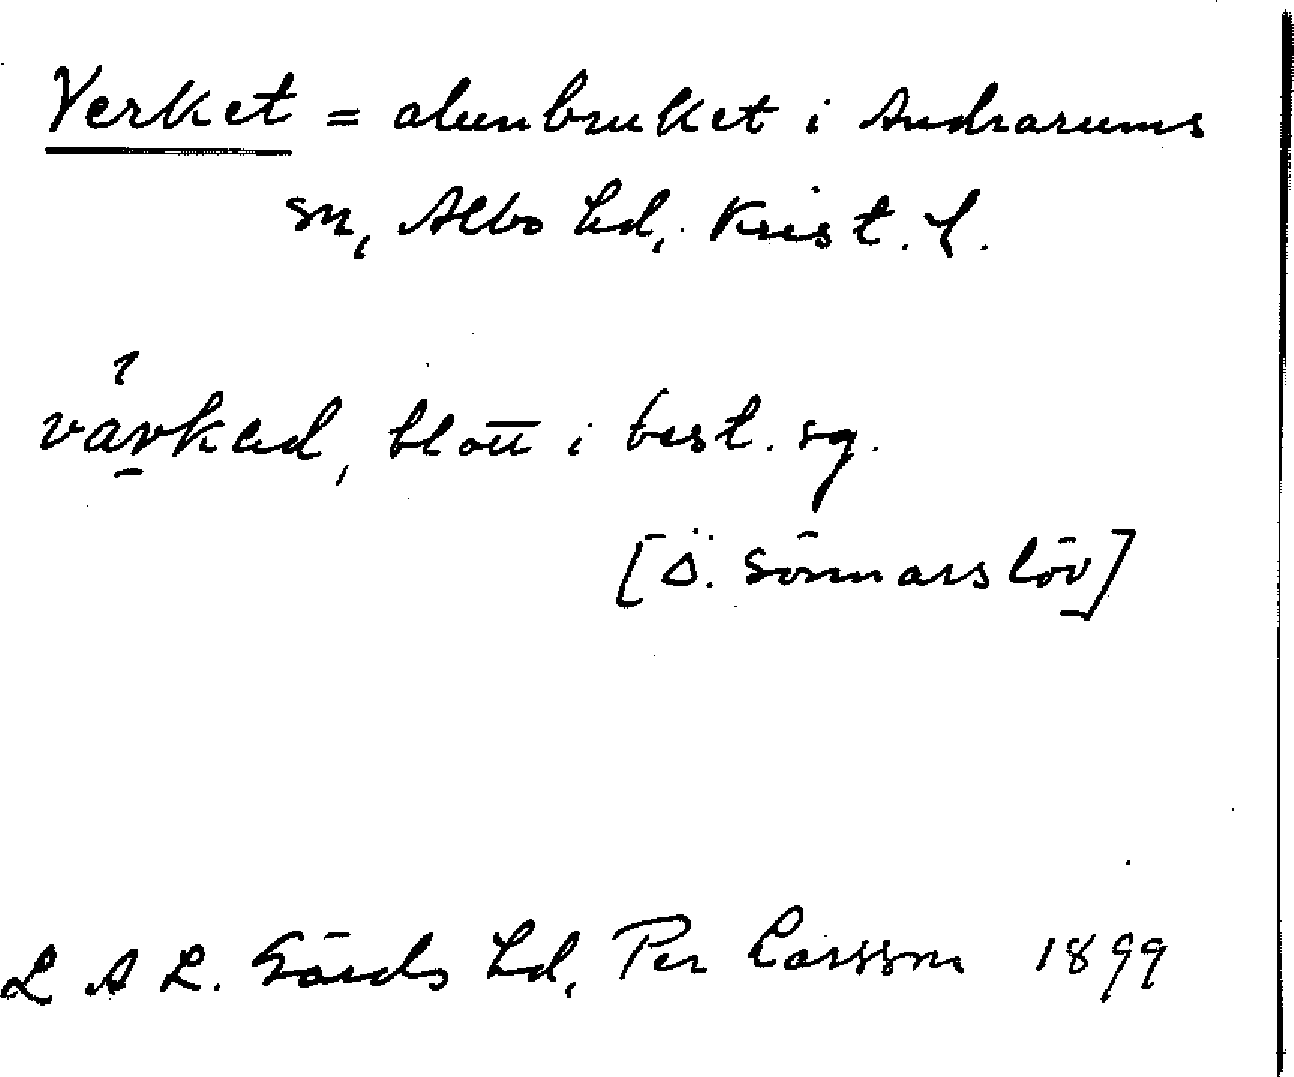 Verket = alunbruket i Andrarums
sn, Albo hd, Krist. l.
värkad, blott i best. sg.
[Ö. Sönnarslöv]
L A L. Gärds hd, Per Larsson 1899